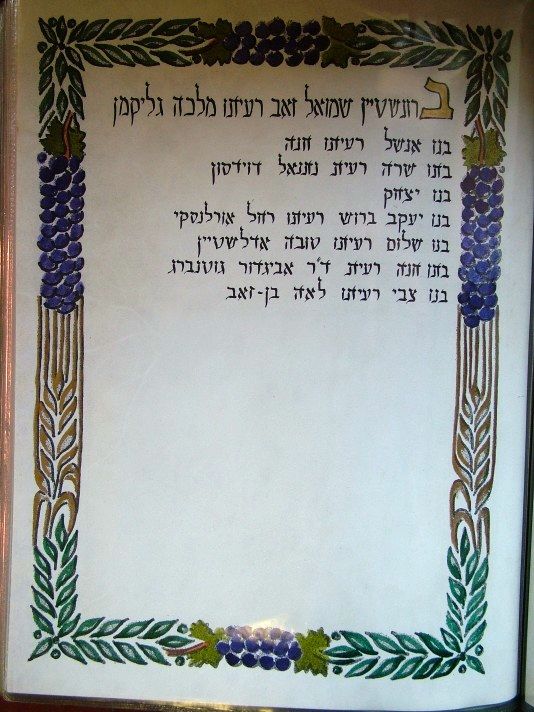 ברונשטיין שמואל זאב רעיתו מלכה גליקמן
בנו אנשל רעיתו חנה
בתו שרה רעית נתנאל דוידסון
בנו יצחק
בנו יעקב ברוש רעיתו רחל אורלנסקי
בנו שלום רעיתו טובה אדלשטיין
בתו חנה רעית ד"ר אביגדור גוטנברג
בנו צבי רעיתו לאה בן-זאב